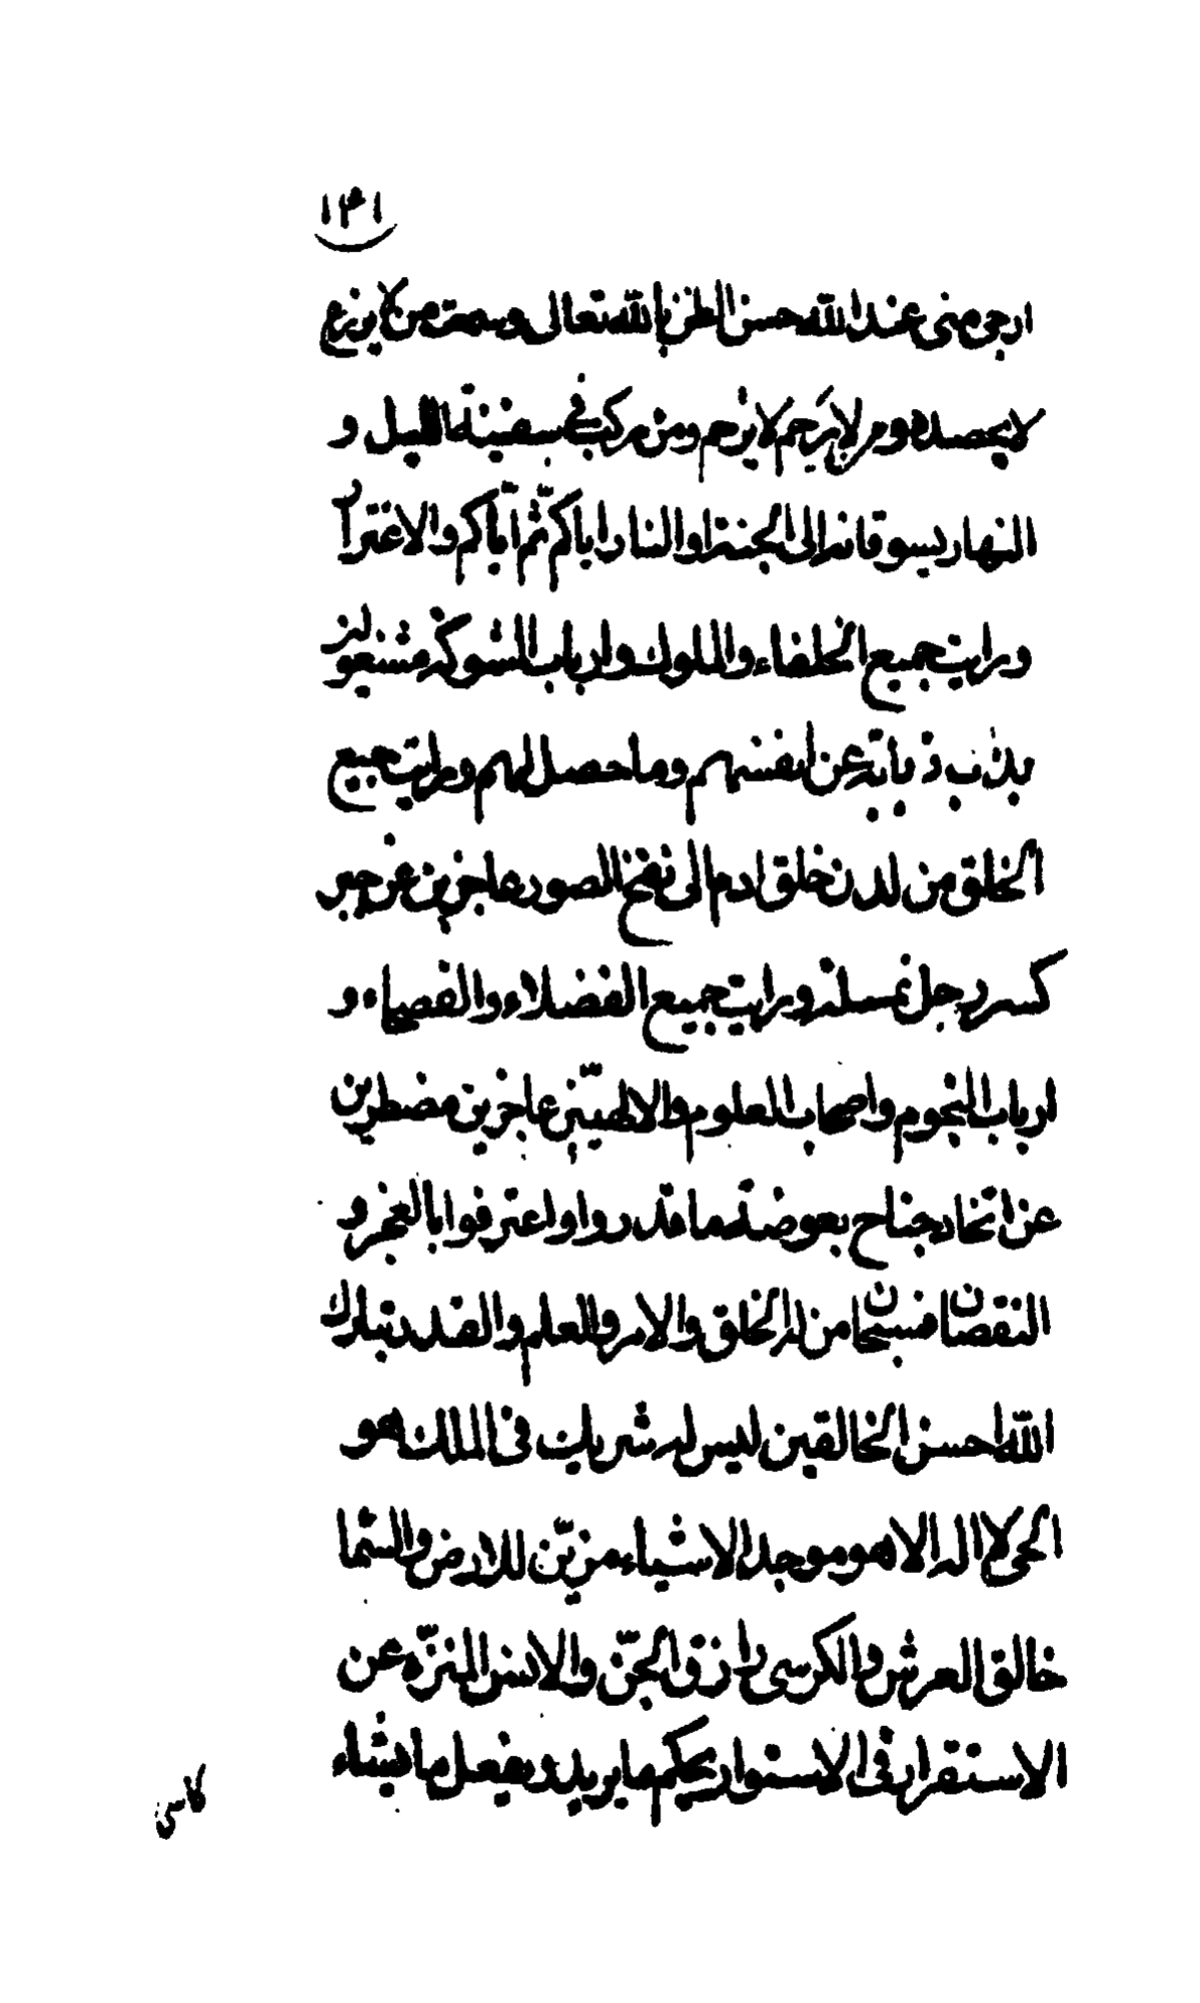 ١٣١
ارجى منى عند الله حسن الظن بالله تعالى وسمعت من لا يزرع
لا يحصد ومن لا يرحم لا يرحم ومن مركبه فى سفينة الليل و
النهار يسوقانه الى الجنة او النار اياكم ثم اياكم والاغترار
ورايت جميع الخلفاء والملوك وارباب الشوكة مشغولين
بذب ذبابة عن انفسهم وما حصل لهم ورايت جميع
الخلق من لدن خلق ادم الى نفخ الصور عاجزين عن جبر
كسر رجل نمسلة ورايت جميع الفضلاء والفصحاء و
ارباب النجوم واصحاب العلوم والالهيين عاجزين مضطرين
عن اتخاد جناح بعوضة ما قدروا واعترفوا بالعجز و
النقصان فسبحان من له الخلق والامر والعلم والقدر تبارك
الله احسن الخالقين ليس له شريك فى الملك هو
الحى لا اله الا هو موجد الاشياء مزين للارض والسما
خالق العرش والكرسى رازق الجن والانس المنزه عن
الاستقرار فى الاستوار يحكم ما يريد ويفعل ما يشاء